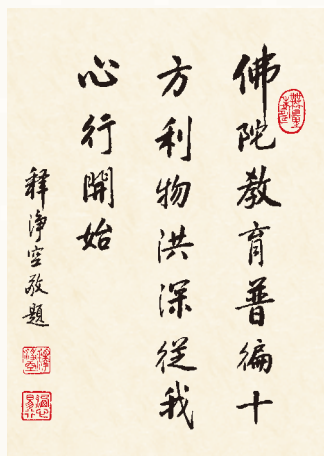 佛陀教育普徧十
方利物洪深從我
心行開始
釋淨空敬題